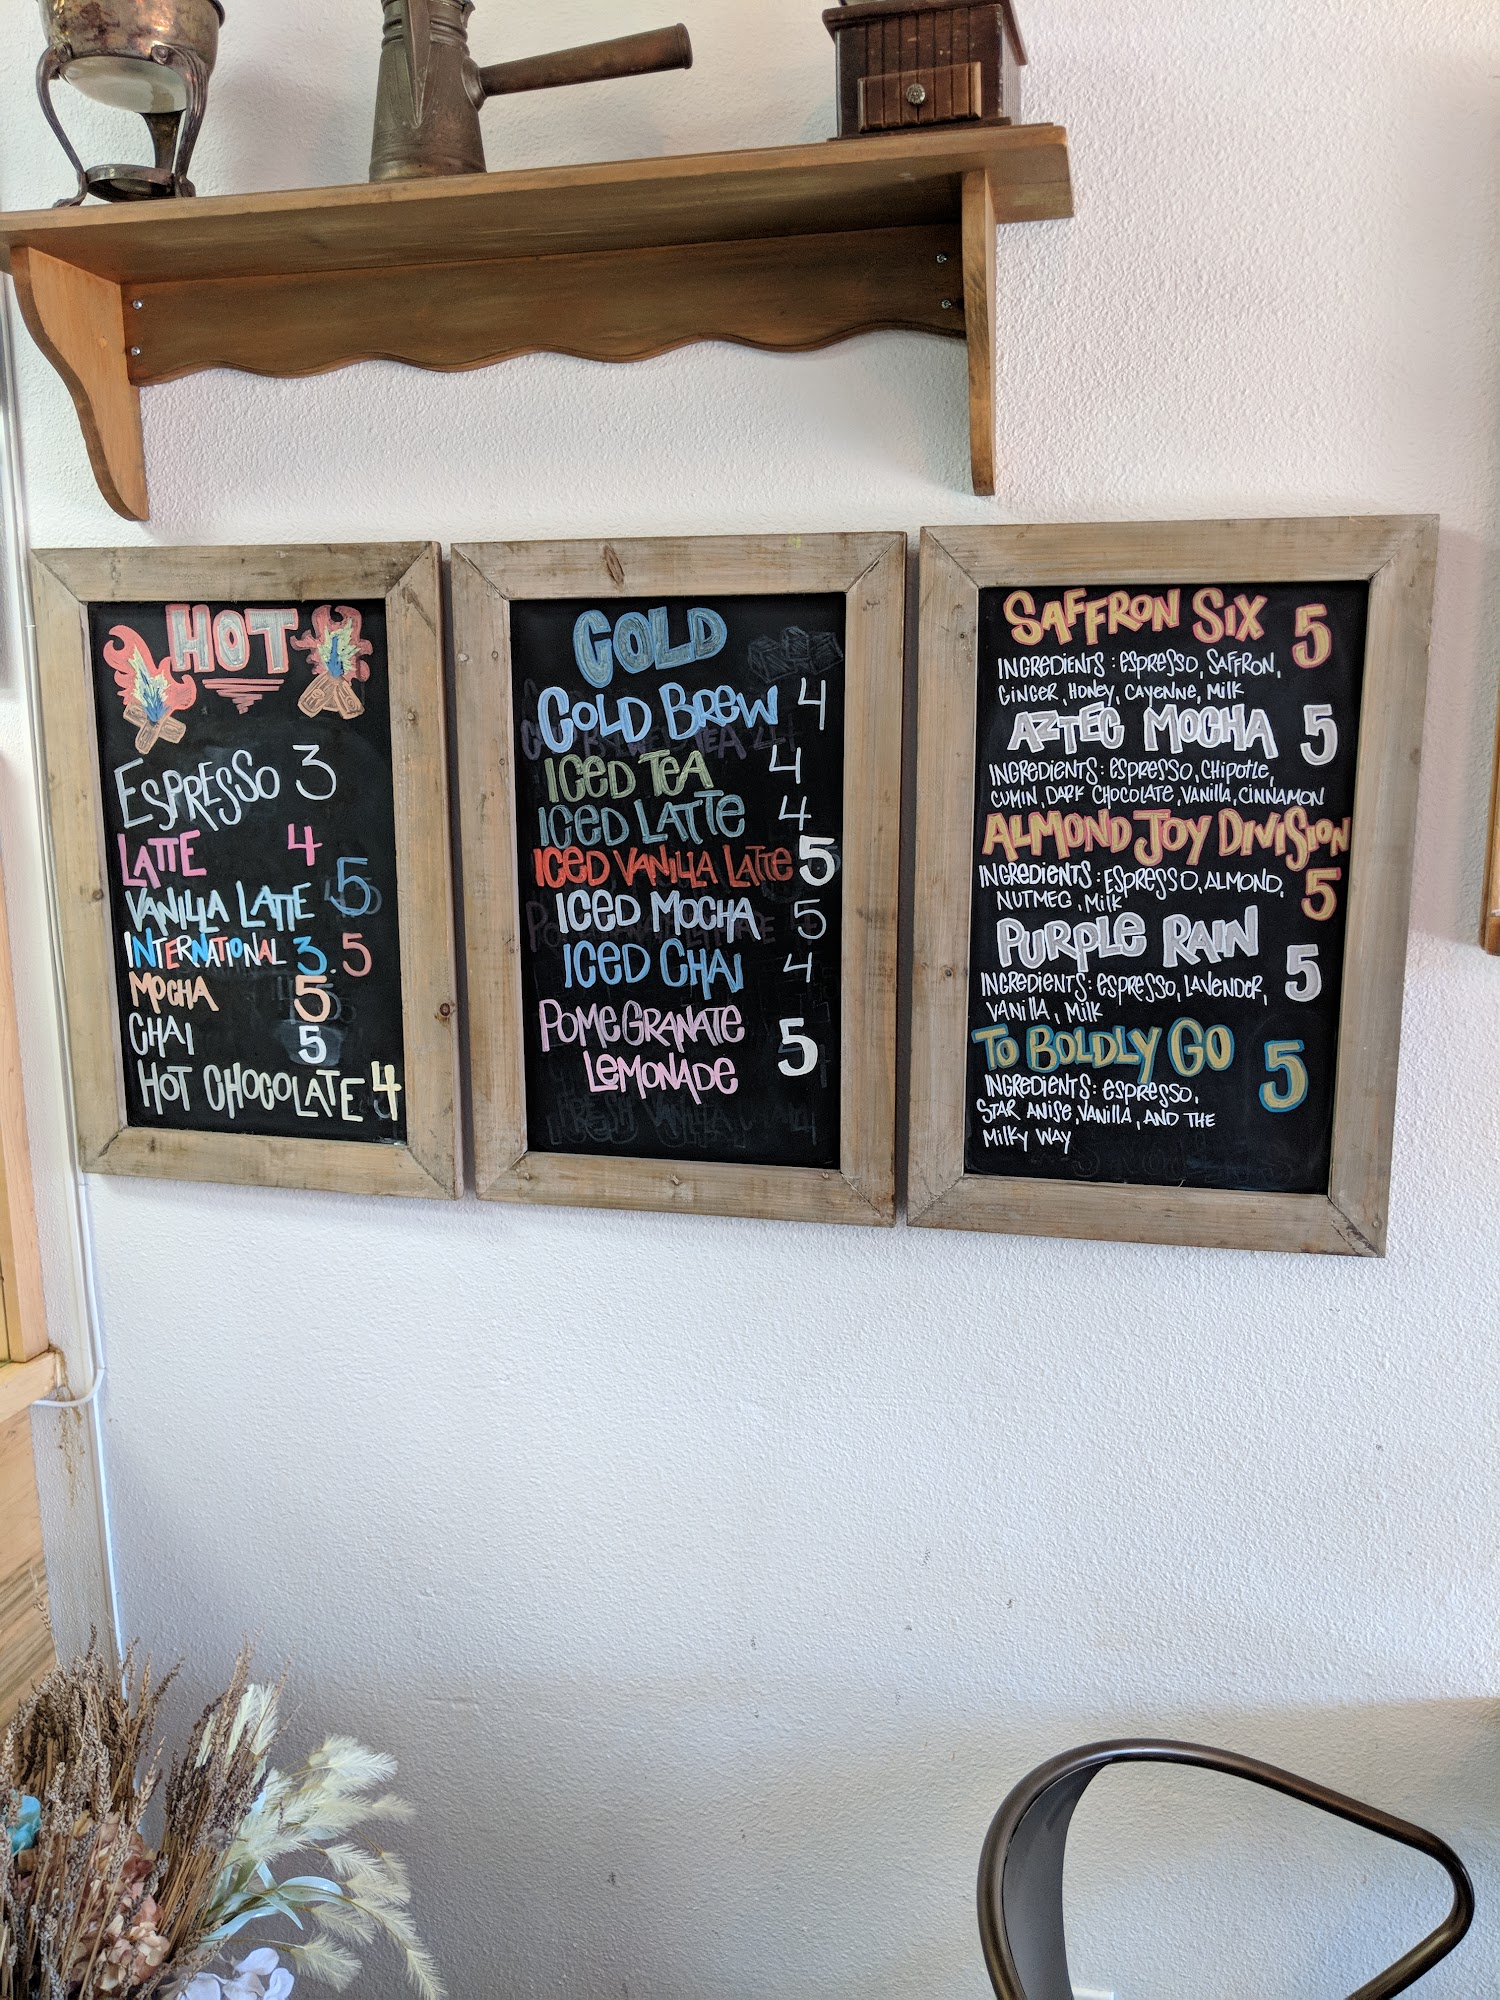 HOT
ESPRESSO 3
LATTE 4
VANILLA LATTE 5
INTERNATIONAL 3.5
MOCHA 5
CHAI 5
HOT CHOCOLATE 4
COLD
COLD BREW 4
ICED TEA 4
ICED LATTE 4
ICED VANILLA LATTE 5
ICED MOCHA 5
ICED CHAI 4
POMEGRANATE
LEMONADE 5
SAFFRON SIX 5
INGREDIENTS: ESPRESSO, SAFFRON,
GINGER, HONEY, CAYENNE, MILK
AZTEC MOCHA 5
INGREDIENTS: ESPRESSO, CHIPOTLE,
CUMIN, DARK CHOCOLATE, VANILLA, CINNAMON
ALMOND JOY DIVISION
5
INGREDIENTS: ESPRESSO, ALMOND,
NUTMEG, MILK
PURPLE RAIN 5
INGREDIENTS: ESPRESSO, LAVENDER,
VANILLA, MILK
TO BOLDLY GO 5
INGREDIENTS: ESPRESSO,
STAR ANISE, VANILLA, AND THE
MILKY WAY